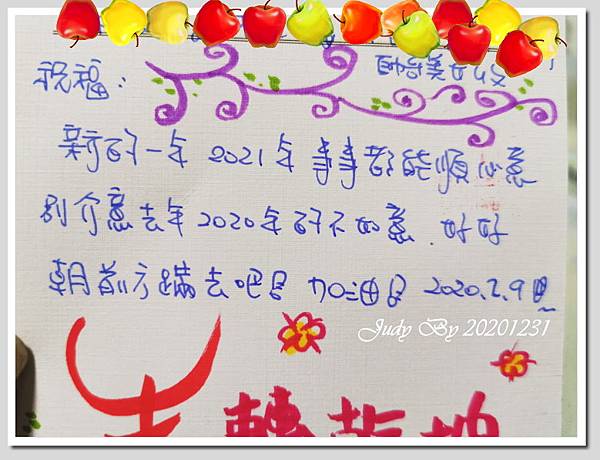 祝福：
帥哥美女
新的一年 2021年 事事都能順心意
別介意去年2020年的不如意.好好
朝前方躋去吧! 加油! 2020.2.9
Judy By 20201231
牛轉乾坤